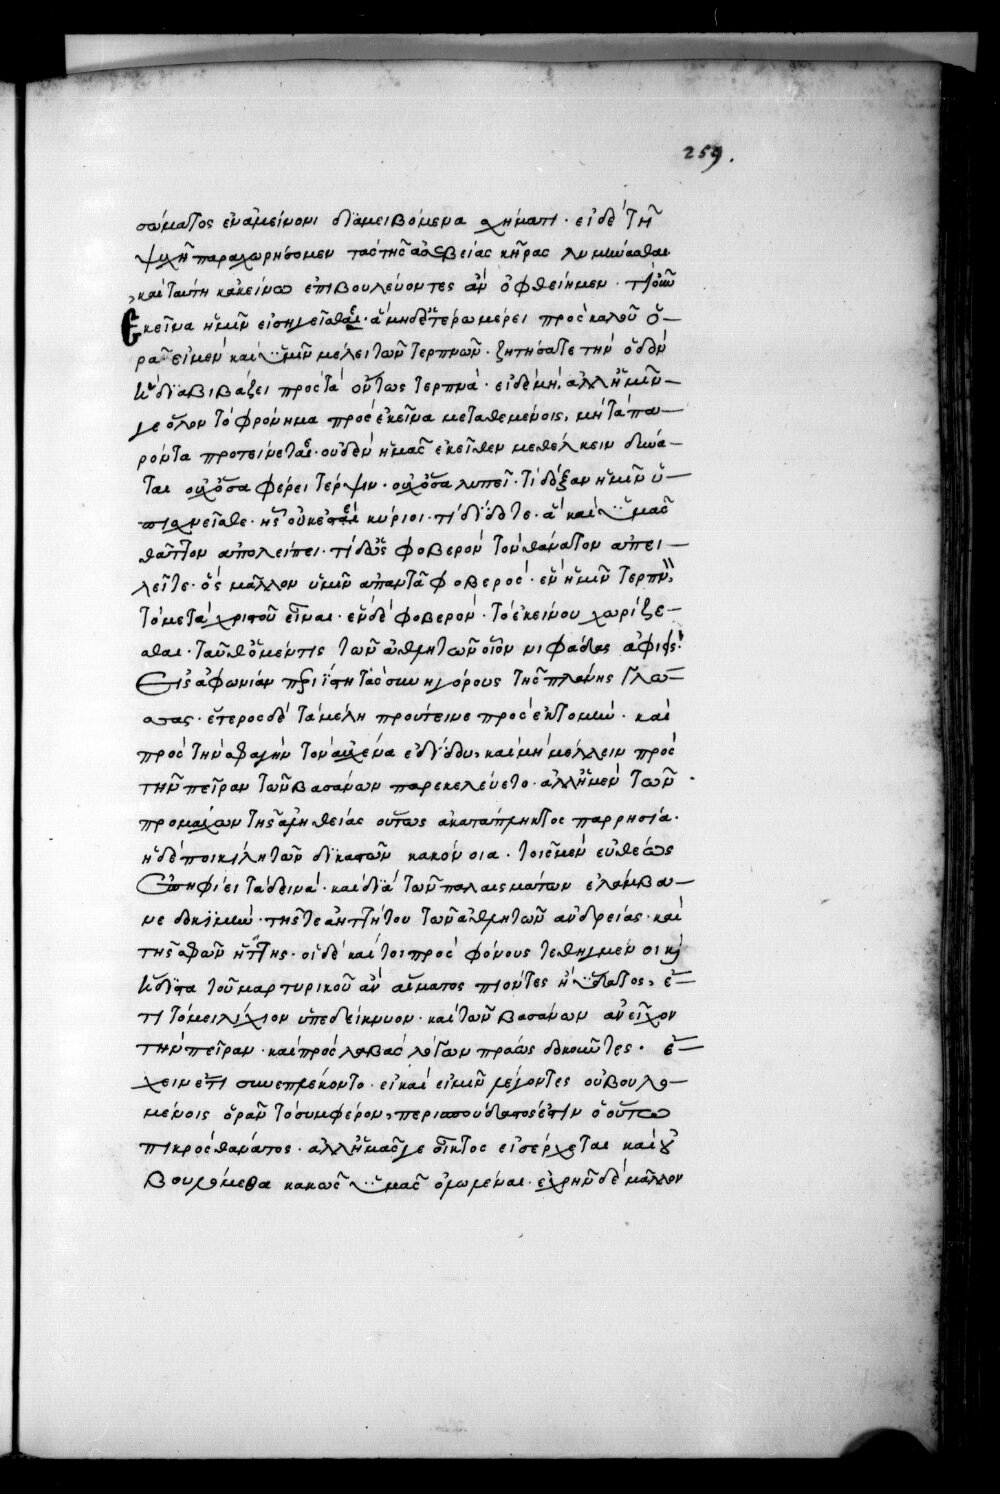 259.
σώματος ἐν ἀμείνονι διαμειβόμενα σχήματι· εἰ δὲ τῇ
ψυχῇ παραχωρήσομεν τὰς τῆς ἀσεβείας κῆρας λυμαίνεσθαι
καὶ ταύτῃ κἀκείνῳ ἐπιβουλεύοντες ἂν ὀφθείημεν·
ἐκεῖνα ἡμῖν εἰσηγεῖσθαι· ἃ μηδετέρῳ μέρει πρὸς καλοῦ ὁ
ρᾶ· εἰ μὲν καὶ ὑμῖν μέλει τῶν τερπνῶν· ζητήσατε τὴν ὁδὸν
ἣ διαβιβάζει πρὸς τὰ ὄντως τερπνά· εἰ δὲ μὴ, ἀλλ' ἡμῖν
γε ὅλον τὸ φρόνημα πρὸς ἐκεῖνα μεταθεμένοις, μὴ τὰ πα
ρόντα προτείνεται· οὐδὲν ἡμᾶς ἐκεῖθεν μεθέλκειν δύνα
ται οὐχ ὅσα φέρει τέρψιν· οὐχ ὅσα λυπεῖ· τί δόξαν ἡμῖν ὑ
πισχνεῖσθε· ἧς οὐκ ἐστὲ κύριοι· τί δίδοτε· ἃ καὶ ὑμᾶς
θᾶττον ἀπολείπει· τί δ' ὡς φοβερὸν τὸν θάνατον ἀπει
λεῖτε· ὃς μᾶλλον ὑμῖν ἀπαντᾶ φοβερός· ἓν ἡμῖν τερπνὸν
τὸ μετὰ χριστοῦ εἶναι· ἓν δὲ φοβερὸν· τὸ ἐκείνου χωρίζε
σθαι· ταῦθ' ὁ μέντις τῶν ἀθλητῶν οἷον νιφάδας ἀφιεὶς
εἰς ἀφωνίαν περιίστη τοὺς συνηγόρους τῆς πλάνης γλώσ
σας· ἕτερος δὲ τὰ μέλη προύτεινε πρὸς ἐκτομὴν· καὶ
πρὸς τὴν σφαγὴν τὸν αὐχένα ἐδίδου, καὶ μὴ μέλλειν πρὸς
τὴν πεῖραν τῶν βασάνων παρεκελεύετο· ἀλλ' ἡ μὲν τῶν
προμάχων τῆς ἀληθείας οὕτως ἀκατάπληκτος παρρησία·
ἡ δὲ ποικίλη τῶν δικαστῶν κακόνοια· τοῖς μὲν εὐθέως
ἐπηφίει τὰ δεινά· καὶ διὰ τῶν παλαισμάτων ἐλάμβα
νε δοκιμὴν· τῆς τε ἀηττήτου τῶν ἀθλητῶν ἀνδρείας· καὶ
τῆς σφῶν ἥττης· οἱ δὲ καί τοι πρὸς φόνους τεθηγμένοι κὶ
ἥδιστα τοῦ μαρτυρικοῦ ἂν αἵματος πιόντες ἢ ὕδατος, ἔ
τι τὸ μειλίχιον ὑπεδείκνυον· καὶ τῶν βασάνων ἀνεῖχον
τὴν πεῖραν· καὶ προσλαβὰς λόγων πράως δοκοῦντες· ἔ
χειν ἔτι συνεπλέκοντο· εἰ καὶ εἰμὴν λέγοντες οὐ βουλο
μένοις ὁρᾶν τὸ συμφέρον, περισπούδαστος ἐστὶν ὁ οὕτω
πικρὸς θάνατος· ἀλλ' ἡμᾶς γε οἶκτος εἰσέρχεται καὶ οὐ
βουλόμεθα κακῶς ὑμᾶς ὀλωλέναι· ἐχρῆν δὲ μᾶλλον